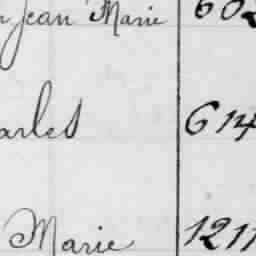 Jean Marie 602
arles 614
Marie 1211